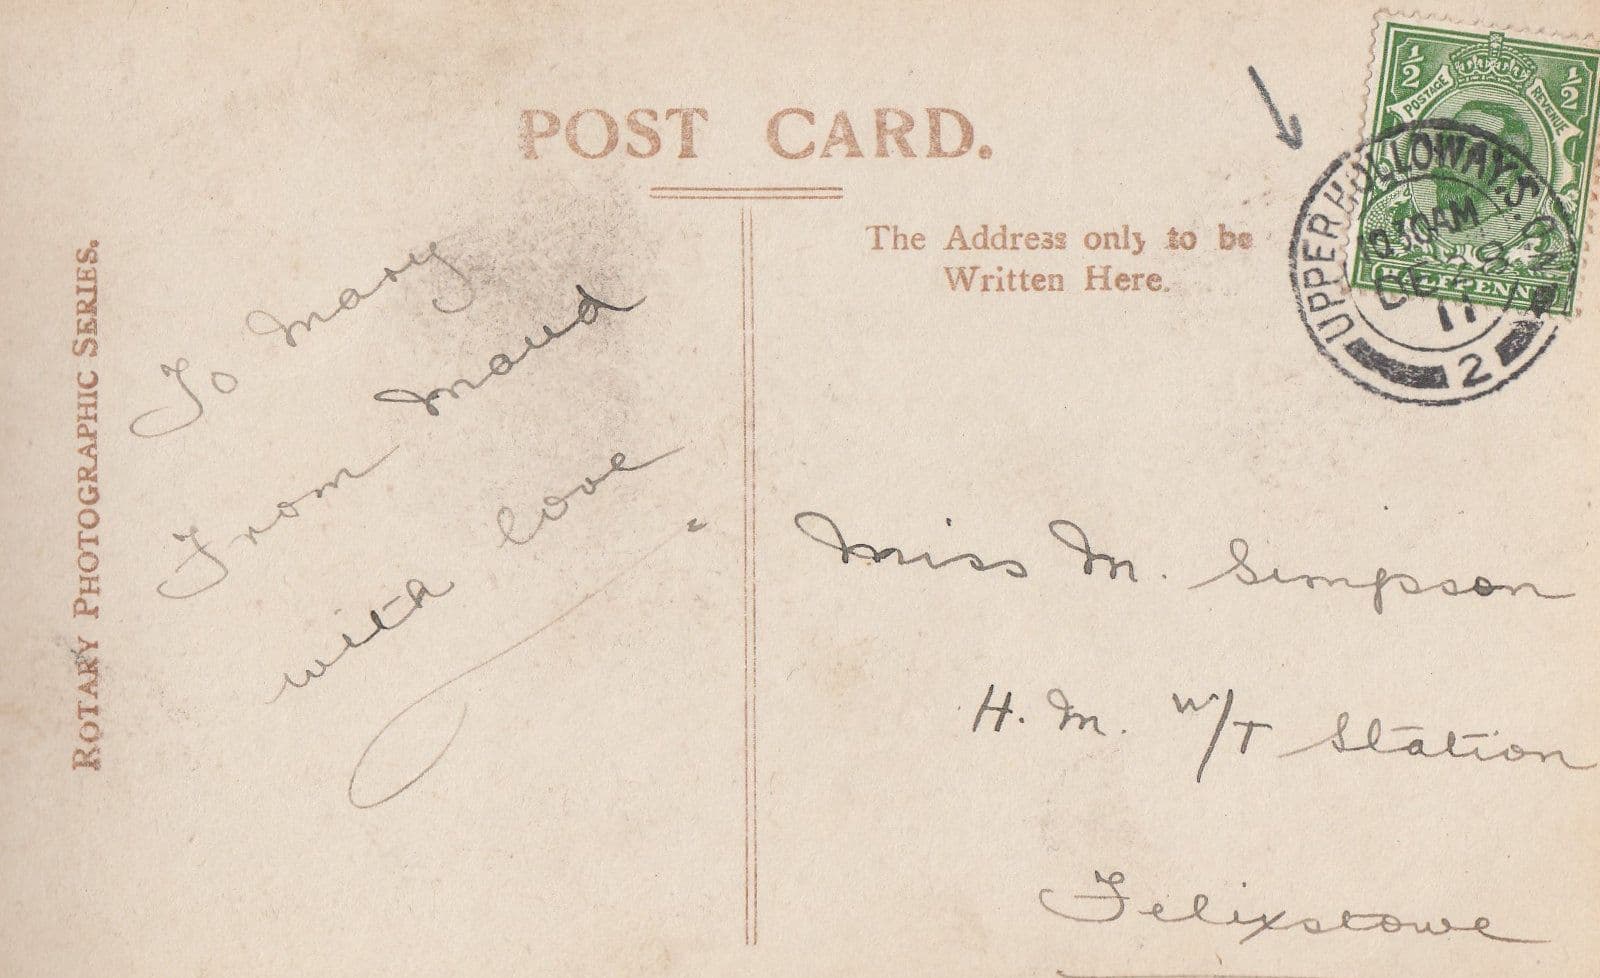 POST CARD.
ROTARY PHOTOGRAPHIC SERIES.
To Mary
From Maud
with love
The Address only to be
Written Here.
½ ½
POSTAGE REVENUE
HALFPENNY
UPPER HOLLOWAY. S.O. N.
10.30AM
DE 28
11
2
Miss M. Simpson
H. M. W/T Station
Felixstowe